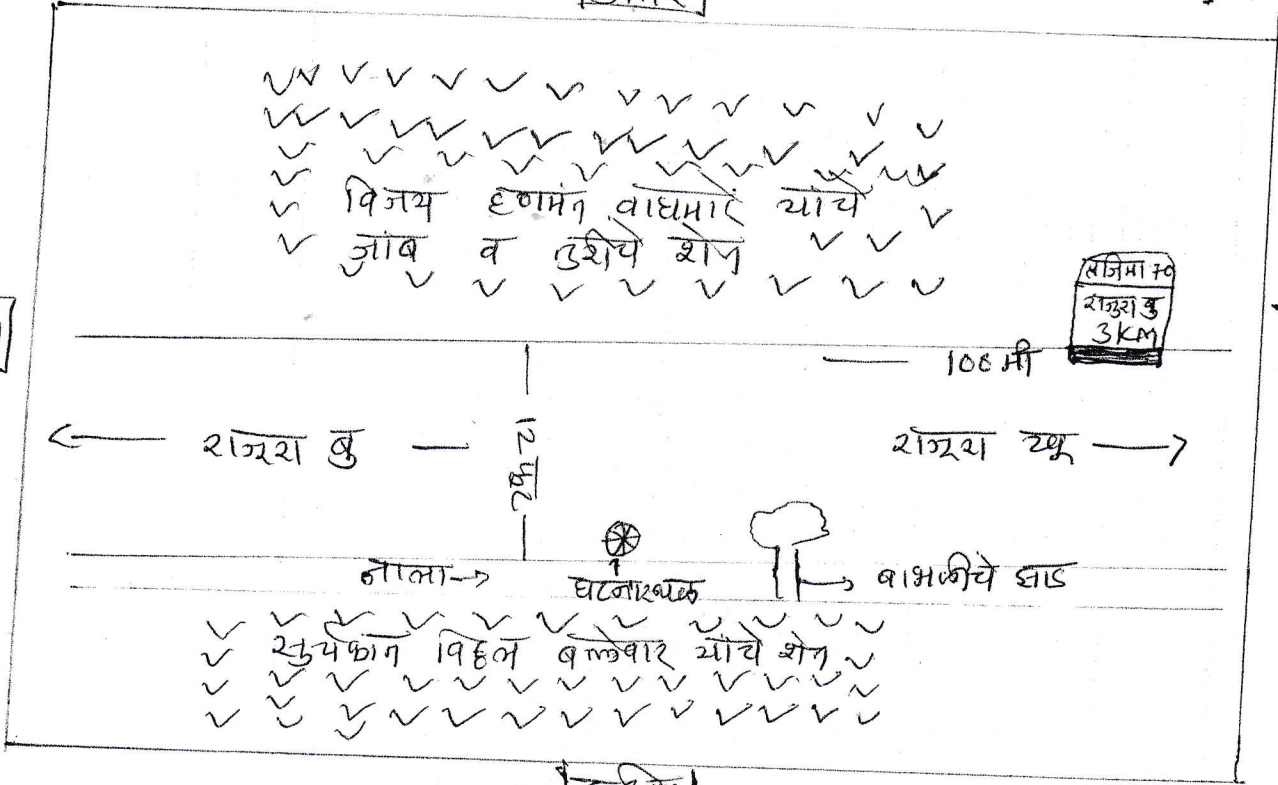 उत्तर
विजय हणमंत वाघमारे यांचे
जांब व तुरीचे शेत
लजिमा 70
राजुरा बु
3 KM
100 मी
राजूरा बु
12 फुट
राजूरा
नाला
घटनास्थळ
बाभळीचे झाड
सुर्यकांत विठ्ठल बल्लेवार यांचे शेत